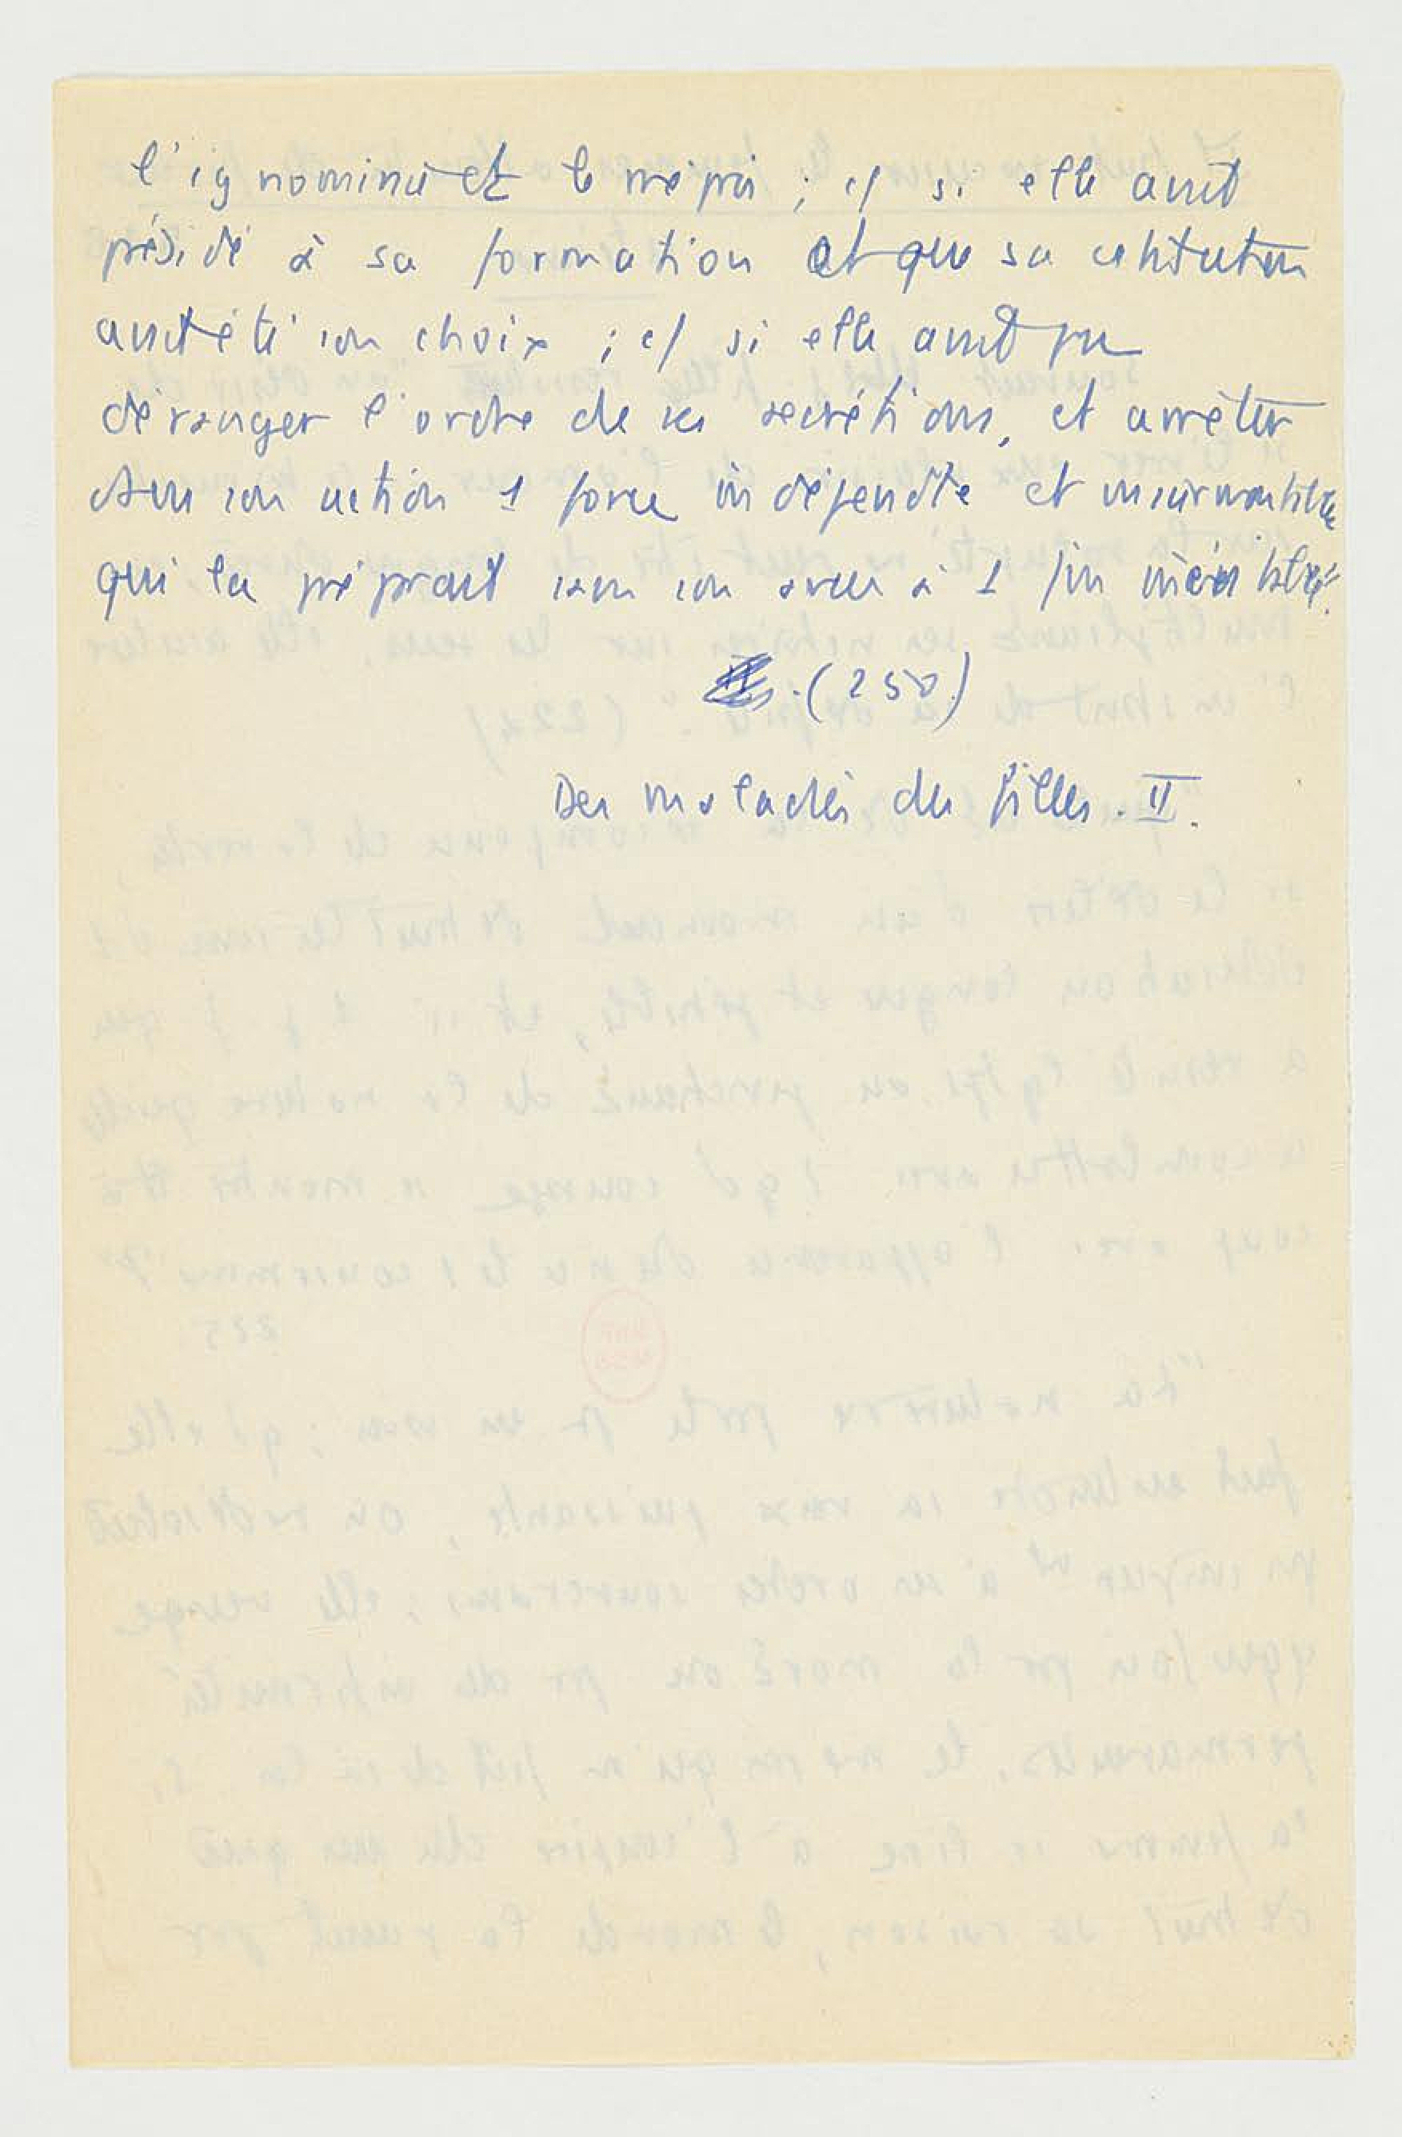 l'ignominie et le mépris ; c/ si elle avait
présidé à sa formation et que sa constitution
avait été son choix ; c/ si elle avait pu
déranger l'ordre de ses secrétions, et arrêter
dans son action 1 force indépendte et insurmontable
qui la préparait sans son aveu à 1 fin inévitable".
(250)
Des maladies des filles. II.